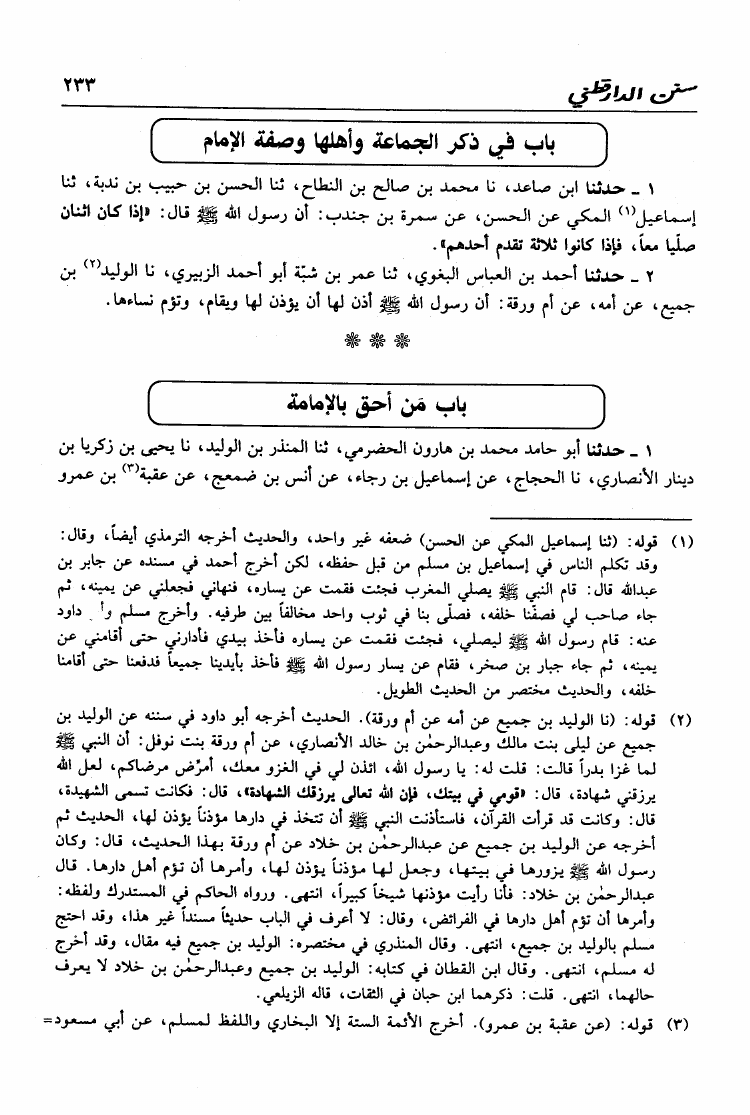 سنن الدارقطني ٢٣٣
باب في ذكر الجماعة وأهلها وصفة الإمام
١ ـ حدثنا ابن صاعد، نا محمد بن صالح بن النطاح، ثنا الحسن بن حبيب بن ندبة، ثنا
إسماعيل(١) المكي عن الحسن، عن سمرة بن جندب: أن رسول الله ﷺ قال: «إذا كان اثنان
صلّيا معاً، فإذا كانوا ثلاثة تقدم أحدهم».
٢ ـ حدثنا أحمد بن العباس البغوي، ثنا عمر بن شبّة أبو أحمد الزبيري، نا الوليد(٢) بن
جميع، عن أمه، عن أم ورقة: أن رسول الله ﷺ أذن لها أن يؤذن لها ويقام، وتؤم نساءها.
باب مَن أحق بالإمامة
١ ـ حدثنا أبو حامد محمد بن هارون الحضرمي، ثنا المنذر بن الوليد، نا يحيى بن زكريا بن
دينار الأنصاري، نا الحجاج، عن إسماعيل بن رجاء، عن أنس بن ضمعج، عن عقبة(٣) بن عمرو
(١) قوله: (ثنا إسماعيل المكي عن الحسن) ضعفه غير واحد، والحديث أخرجه الترمذي أيضاً، وقال:
وقد تكلم الناس في إسماعيل بن مسلم من قبل حفظه، لكن أخرج أحمد في مسنده عن جابر بن
عبدالله قال: قام النبي ﷺ يصلي المغرب فجئت فقمت عن يساره، فنهاني فجعلني عن يمينه، ثم
جاء صاحب لي فصفّنا خلفه، فصلّى بنا في ثوب واحد مخالفاً بين طرفيه. وأخرج مسلم داود
عنه: قام رسول الله ﷺ ليصلي، فجئت فقمت عن يساره فأخذ بيدي فأدارني حتى أقامني عن
يمينه، ثم جاء جبار بن صخر، فقام عن يسار رسول الله ﷺ فأخذ بأيدينا جميعاً فدفعنا حتى أقامنا
خلفه، والحديث مختصر من الحديث الطويل.
(٢) قوله: (نا الوليد بن جميع عن أمه عن أم ورقة). الحديث أخرجه أبو داود في سننه عن الوليد بن
جميع عن ليلى بنت مالك وعبدالرحمٰن بن خالد الأنصاري، عن أم ورقة بنت نوفل: أن النبي ﷺ
لما غزا بدراً قالت: قلت له: يا رسول الله، ائذن لي في الغزو معك، أمرّض مرضاكم، لعل الله
يرزقني شهادة، قال: «قومي في بيتك، فإن الله تعالى يرزقك الشهادة»، قال: فكانت تسمى الشهيدة،
قال: وكانت قد قرأت القرآن، فاستأذنت النبي ﷺ أن تتخذ في دارها مؤذناً يؤذن لها، الحديث ثم
أخرجه عن الوليد بن جميع عن عبدالرحمٰن بن خلاد عن أم ورقة بهذا الحديث، قال: وكان
رسول الله ﷺ يزورها في بيتها، وجعل لها مؤذناً يؤذن لها، وأمرها أن تؤم أهل دارها. قال
عبدالرحمٰن بن خلاد: فأنا رأيت مؤذنها شيخاً كبيراً، انتهى. ورواه الحاكم في المستدرك ولفظه:
وأمرها أن تؤم أهل دارها في الفرائض، وقال: لا أعرف في الباب حديثاً مسنداً غير هذا، وقد احتج
مسلم بالوليد بن جميع، انتهى. وقال المنذري في مختصره: الوليد بن جميع فيه مقال، وقد أخرج
له مسلم، انتهى. وقال ابن القطان في كتابه: الوليد بن جميع وعبدالرحمٰن بن خلاد لا يعرف
حالهما، انتهى. قلت: ذكرهما ابن حبان في الثقات، قاله الزيلعي.
(٣) قوله: (عن عقبة بن عمرو). أخرج الأئمة الستة إلا البخاري واللفظ لمسلم، عن أبي مسعود=